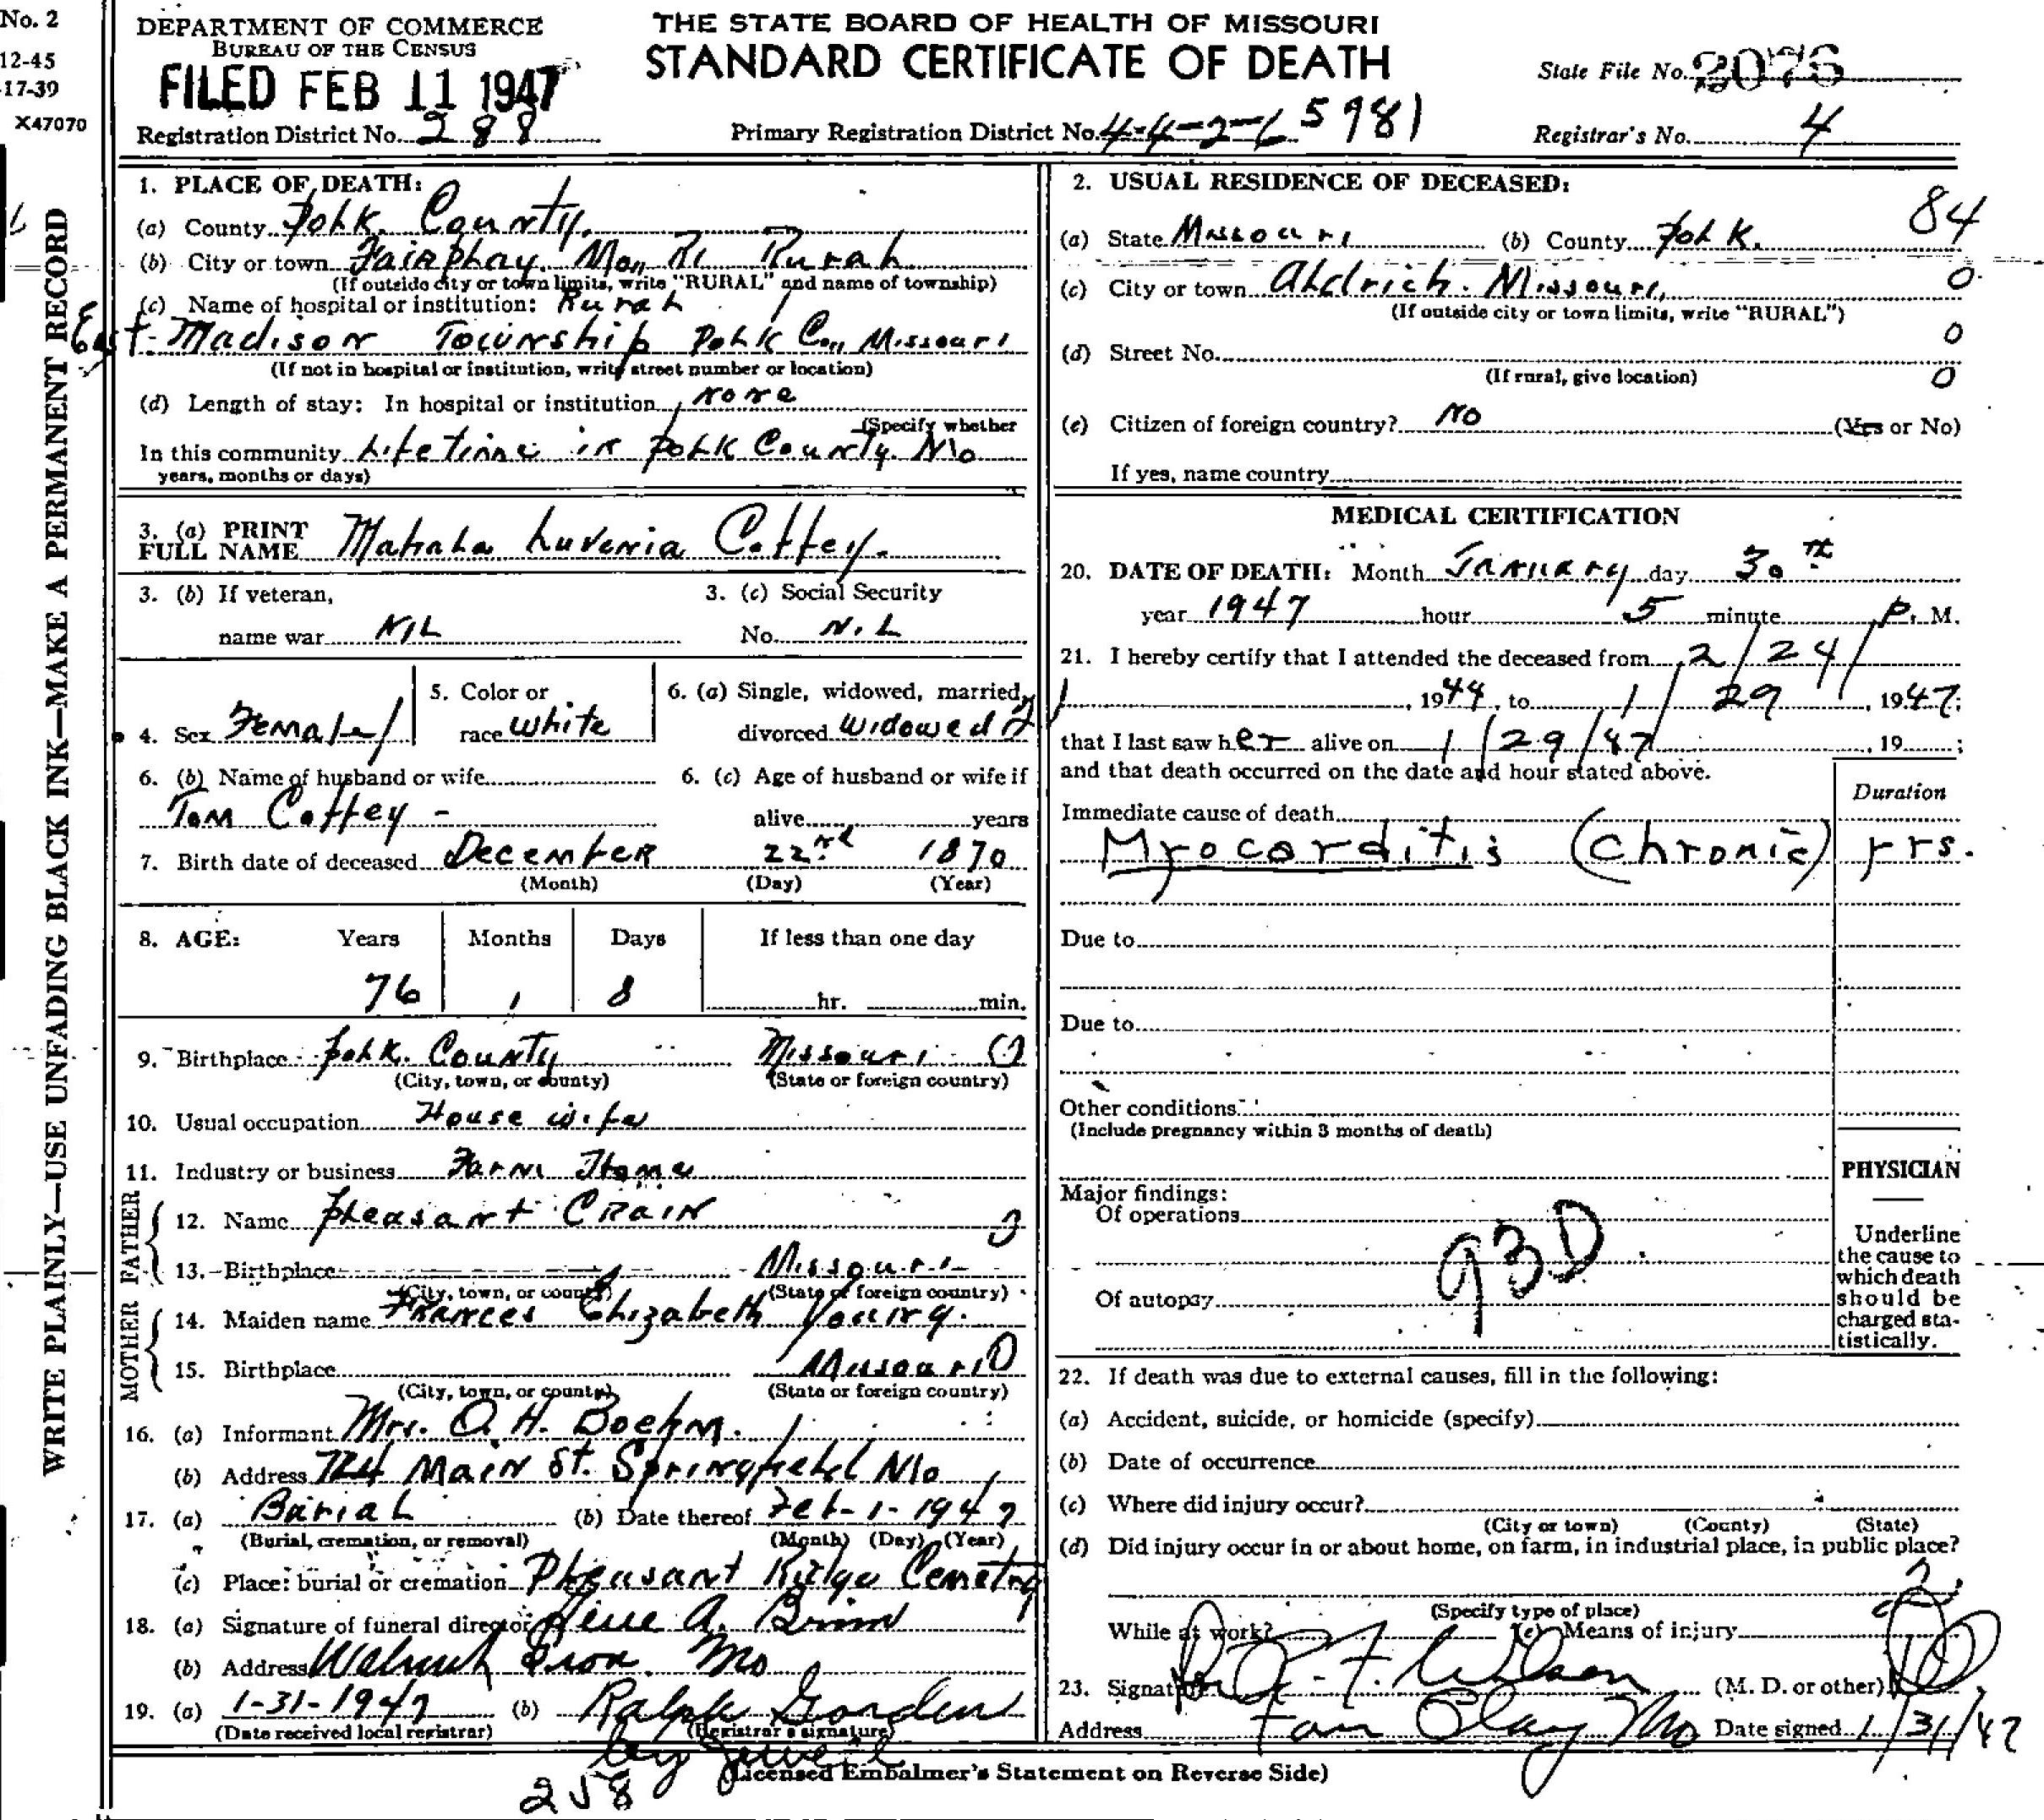 No. 2
12-45
17-39
X47070
DEPARTMENT OF COMMERCE
BUREAU OF THE CENSUS
FILED FEB 11 1947
Registration District No. 288
THE STATE BOARD OF HEALTH OF MISSOURI
STANDARD CERTIFICATE OF DEATH
Primary Registration District No. 4-4-2-6 5981
State File No. 2076
Registrar's No. 4
WRITE PLAINLY—USE UNFADING BLACK INK—MAKE A PERMANENT RECORD
1. PLACE OF DEATH:
(a) County Polk County.
(b) City or town Fairplay. Mo. R1 Rural
(If outside city or town limits, write "RURAL" and name of township)
(c) Name of hospital or institution: Rural
East Madison Township Polk Co., Missouri
(If not in hospital or institution, write street number or location)
(d) Length of stay: In hospital or institution none
(Specify whether
In this community Lifetime in Polk County Mo
years, months or days)
3. (a) PRINT
FULL NAME Mahala Luvenia Coffey.
3. (b) If veteran,
name war NIL
3. (c) Social Security
No. NIL
4. Sex Female
5. Color or
race White
6. (a) Single, widowed, married,
divorced Widowed 2
6. (b) Name of husband or wife
Tom Coffey -
6. (c) Age of husband or wife if
alive years
7. Birth date of deceased December 22nd 1870
(Month) (Day) (Year)
8. AGE: Years Months Days If less than one day
76 1 8 hr. min.
9. Birthplace Polk County Missouri 0
(City, town, or county) (State or foreign country)
10. Usual occupation House wife
11. Industry or business Farm Home
FATHER
12. Name Pleasant Crain
13. Birthplace Missouri
(City, town, or county) (State or foreign country)
MOTHER
14. Maiden name Frances Elizabeth Young.
15. Birthplace Missouri 0
(City, town, or county) (State or foreign country)
16. (a) Informant Mrs. O. H. Boehm.
(b) Address 724 Main St. Springfield Mo
17. (a) Burial (b) Date thereof Feb-1-1947
(Burial, cremation, or removal) (Month) (Day) (Year)
(c) Place: burial or cremation Pleasant Ridge Cemetry
18. (a) Signature of funeral director A.
(b) Address Walnut Mo
19. (a) 1-31-1947 (b) Ralph Gorden
(Date received local registrar) (Registrar's signature)
by
258
(Licensed Embalmer's Statement on Reverse Side)
2. USUAL RESIDENCE OF DECEASED:
84
(a) State Missouri (b) County Polk.
0
(c) City or town Aldrich. Missouri.
(If outside city or town limits, write "RURAL")
0
(d) Street No.
(If rural, give location)
0
(e) Citizen of foreign country? No (Yes or No)
If yes, name country
MEDICAL CERTIFICATION
20. DATE OF DEATH: Month January day 30th
year 1947 hour 5 minute P. M.
21. I hereby certify that I attended the deceased from 2/24/
, 1944, to 1/29, 1947;
that I last saw her alive on 1/29/47, 19 ;
and that death occurred on the date and hour stated above.
Duration
Immediate cause of death
Myocarditis (Chronic) yrs.
Due to
Due to
Other conditions
(Include pregnancy within 3 months of death)
Major findings:
Of operations
93D
Of autopsy
PHYSICIAN
Underline
the cause to
which death
should be
charged sta-
tistically.
22. If death was due to external causes, fill in the following:
(a) Accident, suicide, or homicide (specify)
(b) Date of occurrence
(c) Where did injury occur?
(City or town) (County) (State)
(d) Did injury occur in or about home, on farm, in industrial place, in public place?
(Specify type of place)
While at work? (e) Means of injury
23. Signature F. Wilson (M. D. or other)
Address Fair Play Mo Date signed 1/31/47